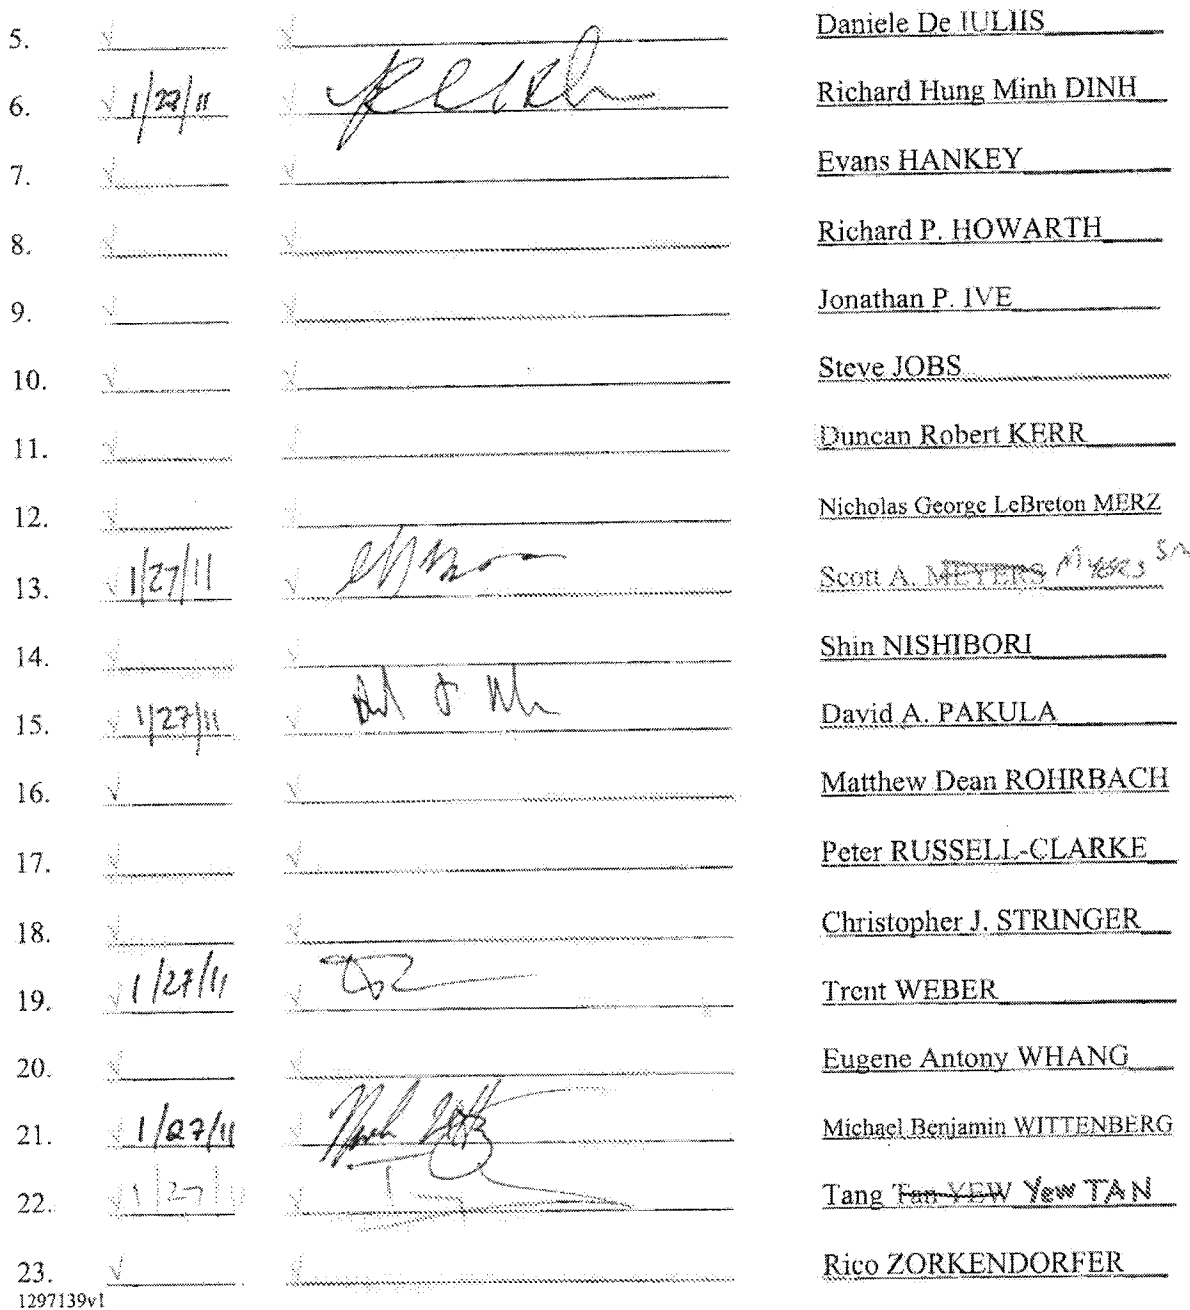 5. Daniele De IULIIS
6. 1/27/11 Richard Hung Minh DINH
7. Evans HANKEY
8. Richard P. HOWARTH
9. Jonathan P. IVE
10. Steve JOBS
11. Duncan Robert KERR
12. Nicholas George LeBreton MERZ
13. 1/27/11 Scott A. MEYERS MYERS SM
14. Shin NISHIBORI
15. 1/27/11 David A. PAKULA
16. Matthew Dean ROHRBACH
17. Peter RUSSELL-CLARKE
18. Christopher J. STRINGER
19. 1/27/11 Trent WEBER
20. Eugene Antony WHANG
21. 1/27/11 Michael Benjamin WITTENBERG
22. 1/27/11 Tang Tan YEW Yew TAN
23. Rico ZORKENDORFER
1297139v1